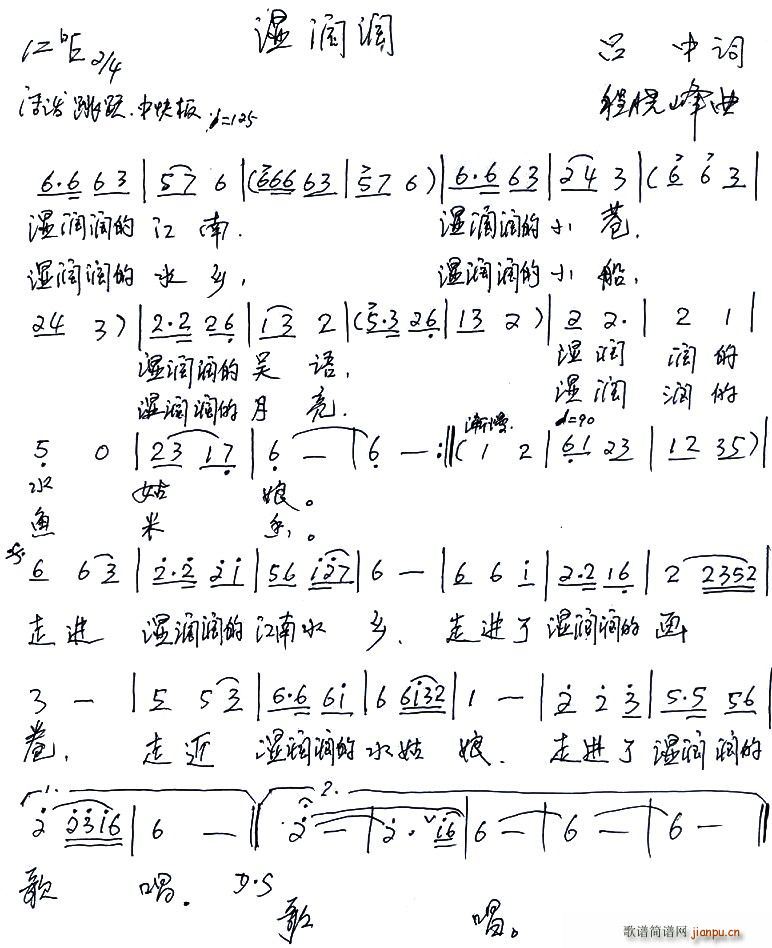 湿润润
1=♭E 2/4
吕 中词
活泼 跳跃.中快板 ♩=125
程晓峰曲
6·6 63 | 57 6 | (666 63 | 57 6) | 6·6 63 | 24 3 | (6 6 3 |
湿润润的 江 南. 湿润润的小 巷.
湿润润的 水 乡, 湿润润的小 船,
24 3) | 2·2 26 | 13 2 | (5·3 26 | 13 2) | 2 2· | 2 1 |
湿润润的 吴 语, 湿 润 润 的
湿润润的 月 亮. 湿 润 润 的
渐慢 ♩=90
5 0 | 23 17 | 6 — | 6 — :‖ (1 2 | 61 23 | 12 35) |
水 姑 娘。
鱼 米 乡。
6 63 | 2·2 21 | 56 127 | 6 — | 6 6 1 | 2·2 16 | 2 2352 |
走进 湿润润的江南水 乡. 走进了湿润润的 画
3 — | 5 53 | 6·6 61 | 6 6132 | 1 — | 2 2 3 | 5·5 56 |
卷, 走近 湿润润的水姑 娘. 走进了湿润润的
1. 2.
2 2316 | 6 — ‖ 2 — | 2· 16 | 6 — | 6 — | 6 — ‖
歌 唱. D.S
歌 唱。
歌谱简谱网
jianpu.cn